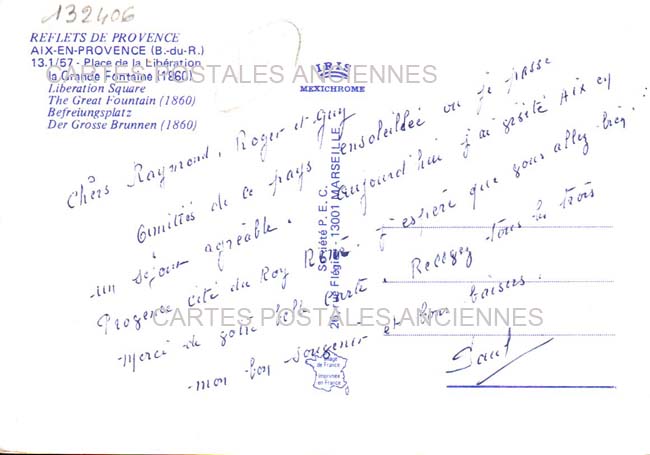 132406
REFLETS DE PROVENCE
AIX-EN-PROVENCE (B.-du-R.)
13.1/57 - Place de la Libération
la Grande Fontaine (1860)
Liberation Square
The Great Fountain (1860)
Befreiungsplatz
Der Grosse Brunnen (1860)
IRIS
MEXICHROME
CARTES POSTALES ANCIENNES
Chers Raymond, Roger et Guy
Amitiés de ce pays ensoleillé où je passe
un séjour agréable. Aujourd'hui j'ai visité Aix en
Provence cité du Roy René. J'espère que vous allez bien.
Merci de votre belle carte. Recevez tous les trois
mon bon souvenir et bons baisers.
Société P.E.C.
Flégier - 13001 MARSEILLE
CARTES POSTALES ANCIENNES
Image
de France
Imprimée
en France